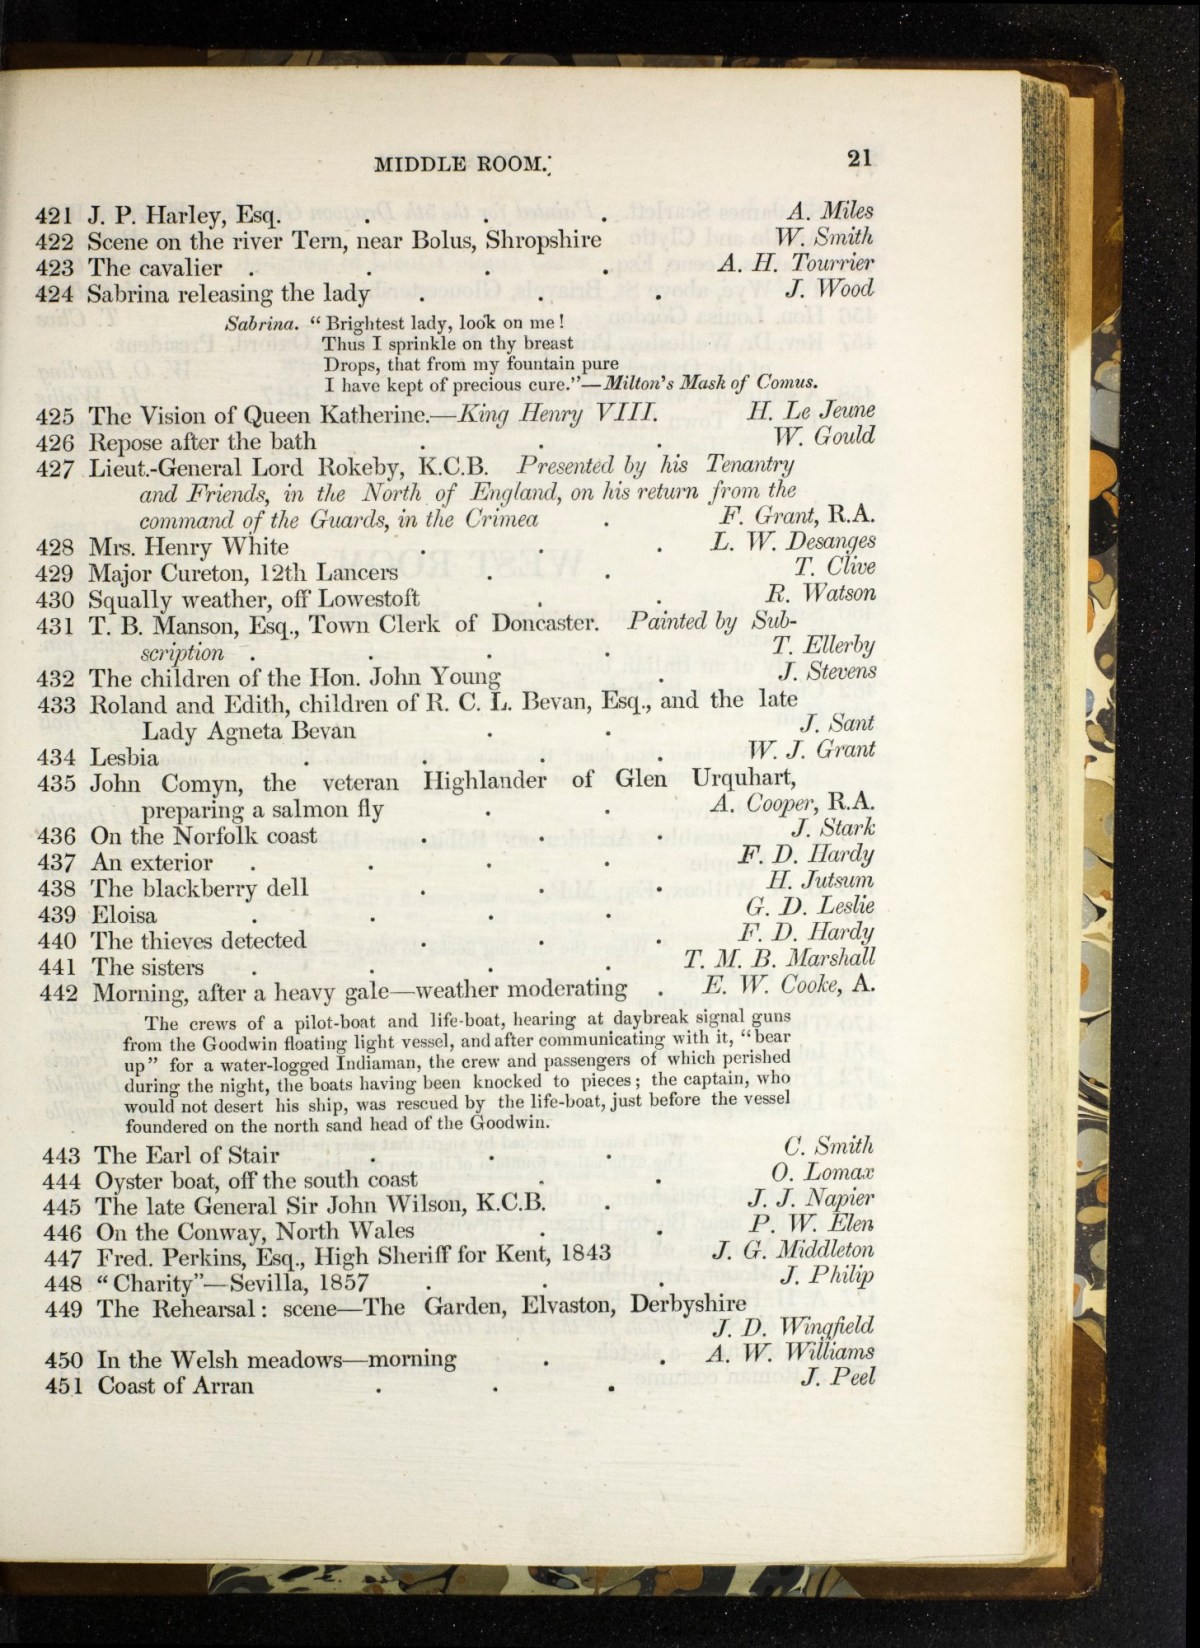 MIDDLE ROOM. 21
421 J. P. Harley, Esq. . . . A. Miles
422 Scene on the river Tern, near Bolus, Shropshire W. Smith
423 The cavalier . . . . A. H. Tourrier
424 Sabrina releasing the lady . . . J. Wood
Sabrina. "Brightest lady, look on me!
Thus I sprinkle on thy breast
Drops, that from my fountain pure
I have kept of precious cure."—Milton's Mask of Comus.
425 The Vision of Queen Katherine.—King Henry VIII. H. Le Jeune
426 Repose after the bath . . . W. Gould
427 Lieut.-General Lord Rokeby, K.C.B. Presented by his Tenantry
and Friends, in the North of England, on his return from the
command of the Guards, in the Crimea . F. Grant, R.A.
428 Mrs. Henry White . . . L. W. Desanges
429 Major Cureton, 12th Lancers . . T. Clive
430 Squally weather, off Lowestoft . . R. Watson
431 T. B. Manson, Esq., Town Clerk of Doncaster. Painted by Sub-
scription . . . . T. Ellerby
432 The children of the Hon. John Young . J. Stevens
433 Roland and Edith, children of R. C. L. Bevan, Esq., and the late
Lady Agneta Bevan . . J. Sant
434 Lesbia . . . . W. J. Grant
435 John Comyn, the veteran Highlander of Glen Urquhart,
preparing a salmon fly . . A. Cooper, R.A.
436 On the Norfolk coast . . . J. Stark
437 An exterior . . . . F. D. Hardy
438 The blackberry dell . . . H. Jutsum
439 Eloisa . . . . G. D. Leslie
440 The thieves detected . . . F. D. Hardy
441 The sisters . . . . T. M. B. Marshall
442 Morning, after a heavy gale—weather moderating . E. W. Cooke, A.
The crews of a pilot-boat and life-boat, hearing at daybreak signal guns
from the Goodwin floating light vessel, and after communicating with it, "bear
up" for a water-logged Indiaman, the crew and passengers of which perished
during the night, the boats having been knocked to pieces; the captain, who
would not desert his ship, was rescued by the life-boat, just before the vessel
foundered on the north sand head of the Goodwin.
443 The Earl of Stair . . . C. Smith
444 Oyster boat, off the south coast . . O. Lomax
445 The late General Sir John Wilson, K.C.B. . J. J. Napier
446 On the Conway, North Wales . . P. W. Elen
447 Fred. Perkins, Esq., High Sheriff for Kent, 1843 J. G. Middleton
448 "Charity"—Sevilla, 1857 . . . J. Philip
449 The Rehearsal: scene—The Garden, Elvaston, Derbyshire
J. D. Wingfield
450 In the Welsh meadows—morning . . A. W. Williams
451 Coast of Arran . . . J. Peel